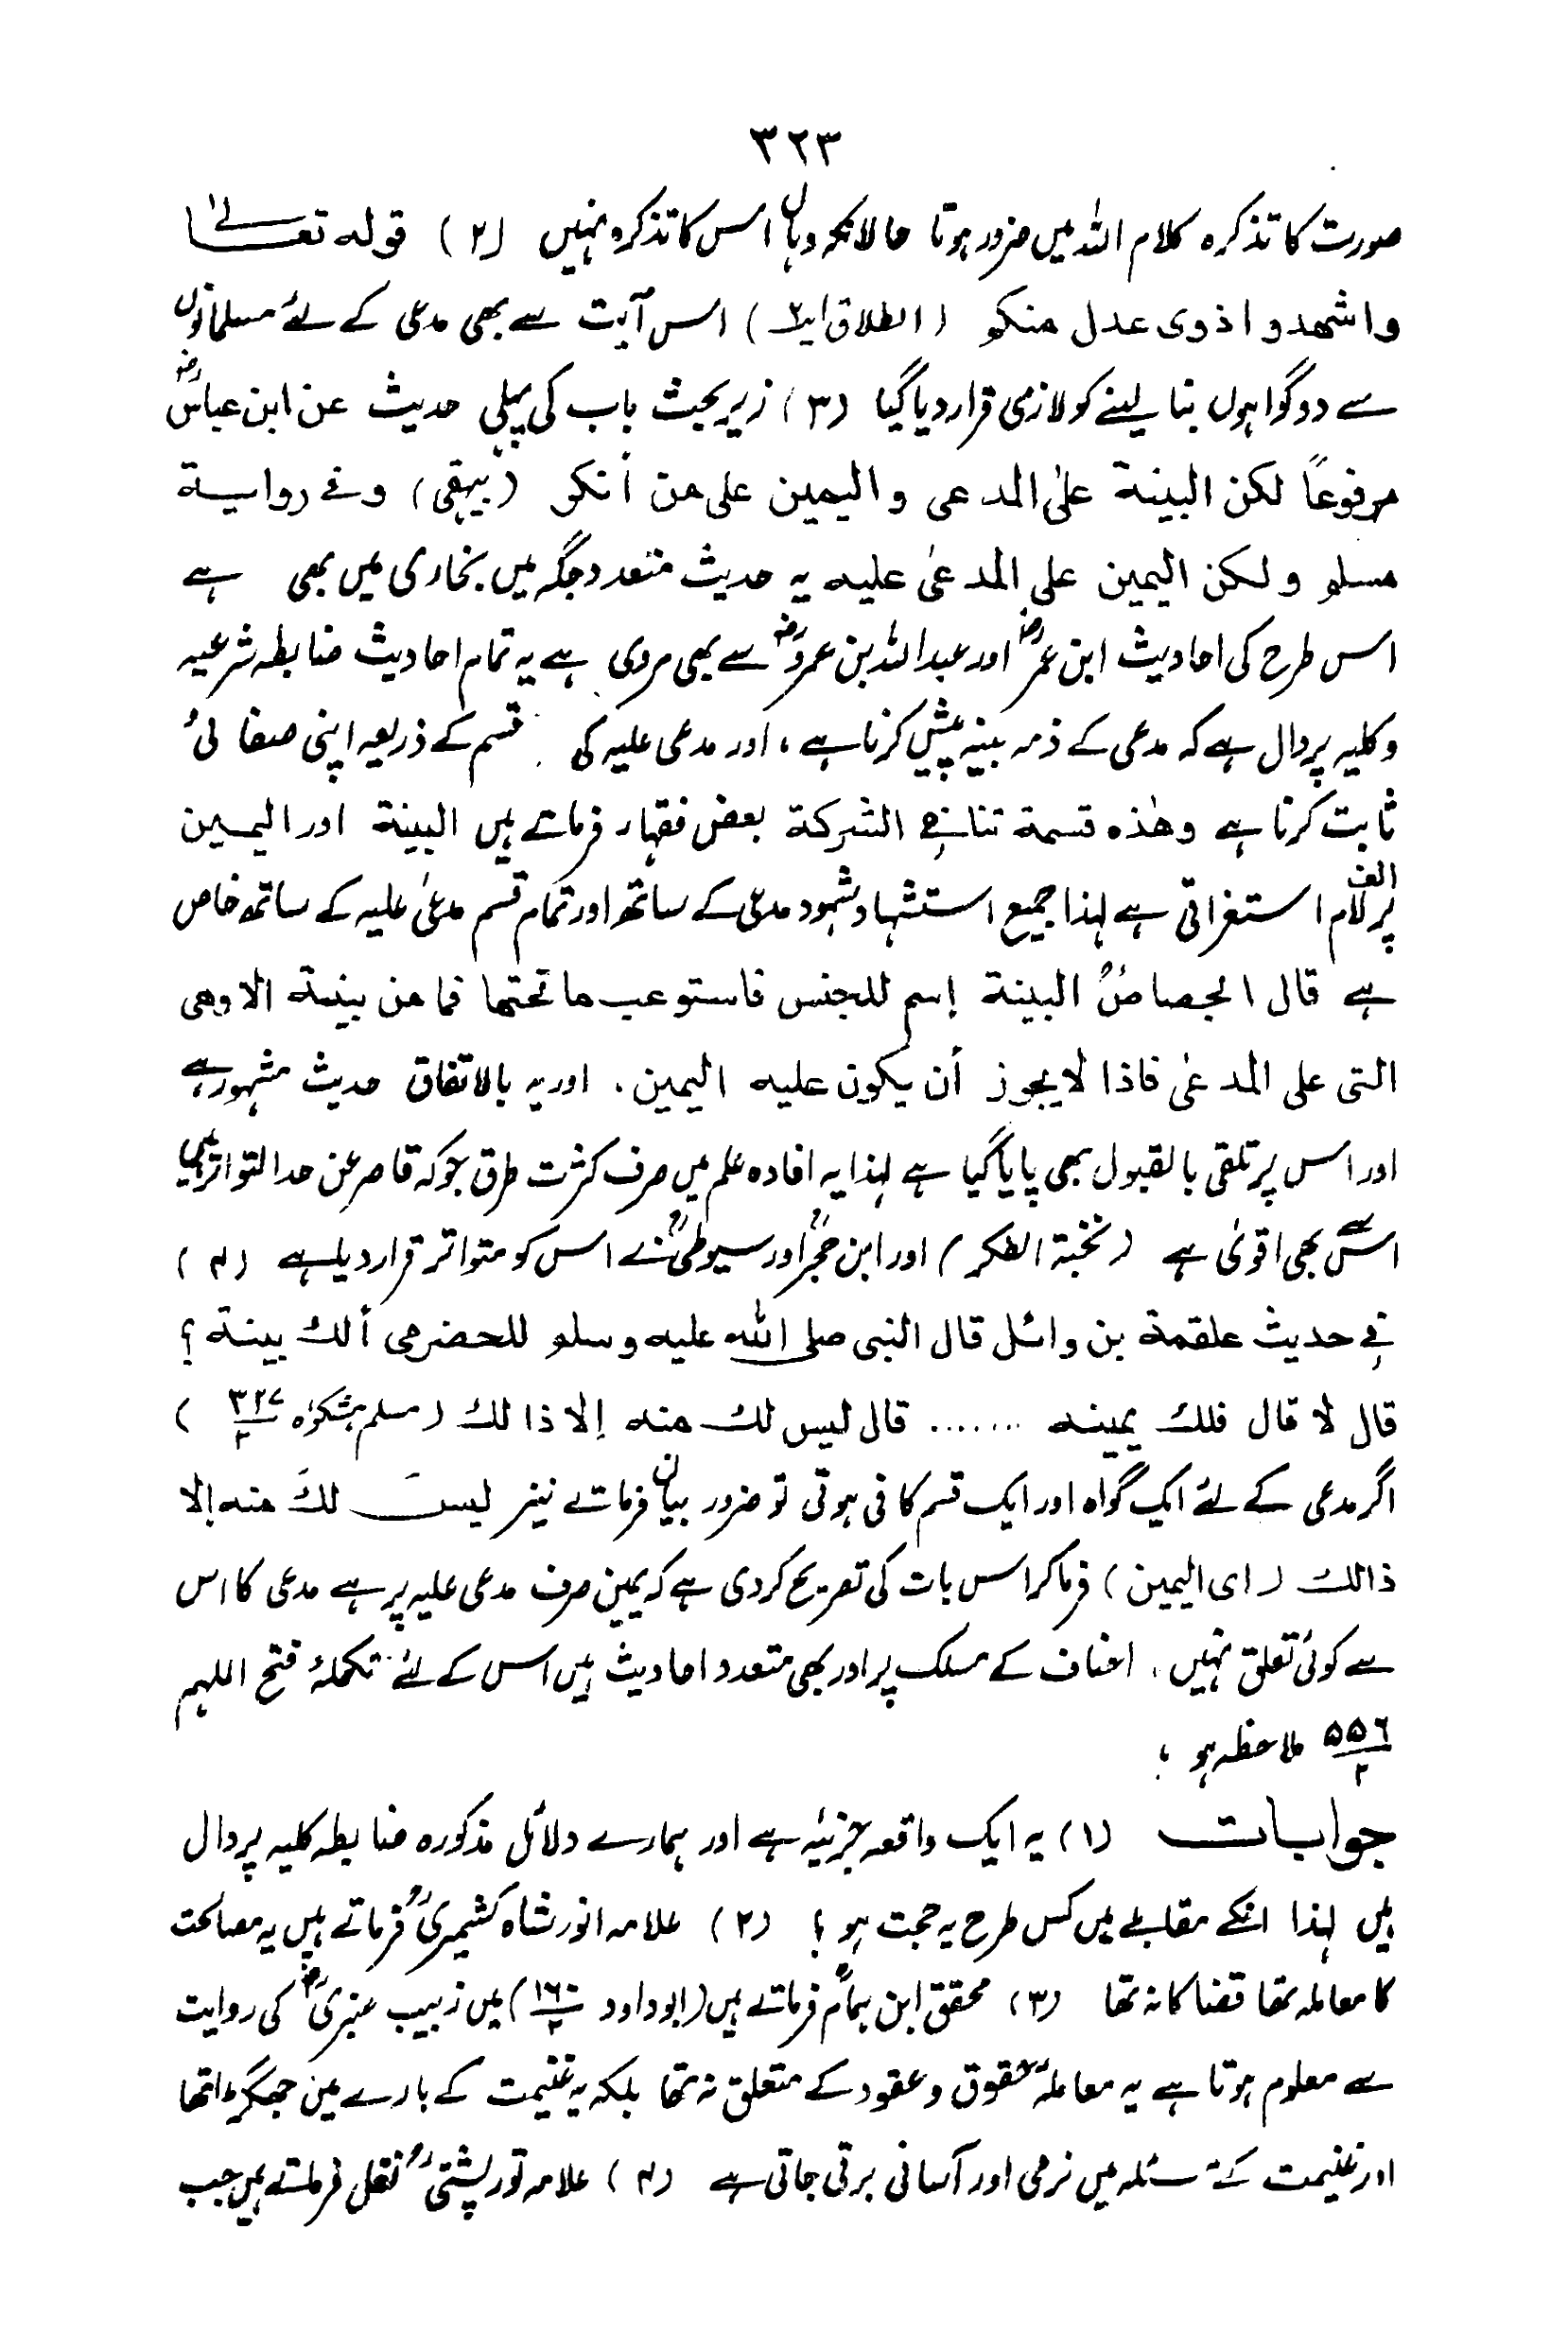 ۳۲۳
صورت کا تذکرہ کلام اللہ میں ضرور ہوتا حالانکہ وہاں اس کا تذکرہ نہیں (۲) قولہ تعالیٰ
واشھدوا ذوی عدل منکم (الطلاق آیۃ۲) اس آیت سے بھی مدعی کے لئے مسلمانوں
سے دو گواہوں بنا لینے کو لازمی قرار دیا گیا (۳) زیر بحث باب کی پہلی حدیث عن ابن عباسؓ
مرفوعاً لکن البینة علیٰ المدعی والیمین علی من أنکر (بیہقی) وفی روایة
مسلم ولکن الیمین علی المدعیٰ علیہ یہ حدیث متعدد جگہ میں بخاری میں بھی ہے
اس طرح کی احادیث ابن عمرؓ اور عبداللہ بن عمروؓ سے بھی مروی ہے یہ تمام احادیث ضابطہ شرعیہ
وکلیہ پر دال ہے کہ مدعی کے ذمہ بینہ پیش کرنا ہے، اور مدعی علیہ کی قسم کے ذریعہ اپنی صفائی
ثابت کرنا ہے وھٰذہ قسمة تنافی الشرکة بعض فقہاء فرماتے ہیں البینة اور الیمین
پر الف لام استغراقی ہے لہذا جمیع استشہاد شہود مدعی کے ساتھ اور تمام قسم مدعیٰ علیہ کے ساتھ خاص
ہے قال الجصاصؒ البینة إسم للجنس فاستوعب ما تحتہا فما من بینة الا وھی
التی علی المدعیٰ فاذا لا یجوز أن یکون علیہ الیمین۔ اور یہ بالاتفاق حدیث مشہور ہے
اور اس پر تلقی بالقبول بھی پایا گیا ہے لہذا یہ افادہ علم میں صرف کثرت طرق جو کہ قاصر عن حد التواتر ہیں
اس سے بھی اقویٰ ہے (نخبۃ الفکر) اور ابن حجرؒ اور سیوطیؒ نے اس کو متواتر قرار دیا ہے (۴)
فی حدیث علقمة بن وائل قال النبی صلی اللہ علیہ وسلم للحضرمی ألک بینة ؟
قال لا قال فلک یمینہ ....... قال لیس لک منہ إلا ذالک (مسلم مشکوٰۃ ۳۲۷/۲)
اگر مدعی کے لئے ایک گواہ اور ایک قسم کافی ہوتی تو ضرور بیان فرماتے نیز لیسَ لکَ منہ إلا
ذالک (ای الیمین) فرما کر اس بات کی تصریح کردی ہے کہ یمین صرف مدعی علیہ پر ہے مدعی کا اس
سے کوئی تعلق نہیں، احناف کے مسلک پر اور بھی متعدد احادیث ہیں اس کے لئے تکملۂ فتح الملہم
۵۵۶/۲ ملاحظہ ہو ؛
جوابات (۱) یہ ایک واقعہ جزئیہ ہے اور ہمارے دلائل مذکورہ ضابطہ کلیہ پر دال
ہیں لہذا انکے مقابلے میں کس طرح یہ حجت ہو ؛ (۲) علامہ انور شاہ کشمیریؒ فرماتے ہیں یہ مصالحت
کا معاملہ تھا قضا کا نہ تھا (۳) محقق ابن ہمامؒ فرماتے ہیں (ابوداود ۱۶۰/۲) میں زبیب عنبریؓ کی روایت
سے معلوم ہوتا ہے یہ معاملۂ حقوق و عقود کے متعلق نہ تھا بلکہ یہ غنیمت کے بارے میں جھگڑا تھا
اور غنیمت کے مسئلہ میں نرمی اور آسانی برتی جاتی ہے (۴) علامہ تورپشتیؒ نقل فرماتے ہیں جب